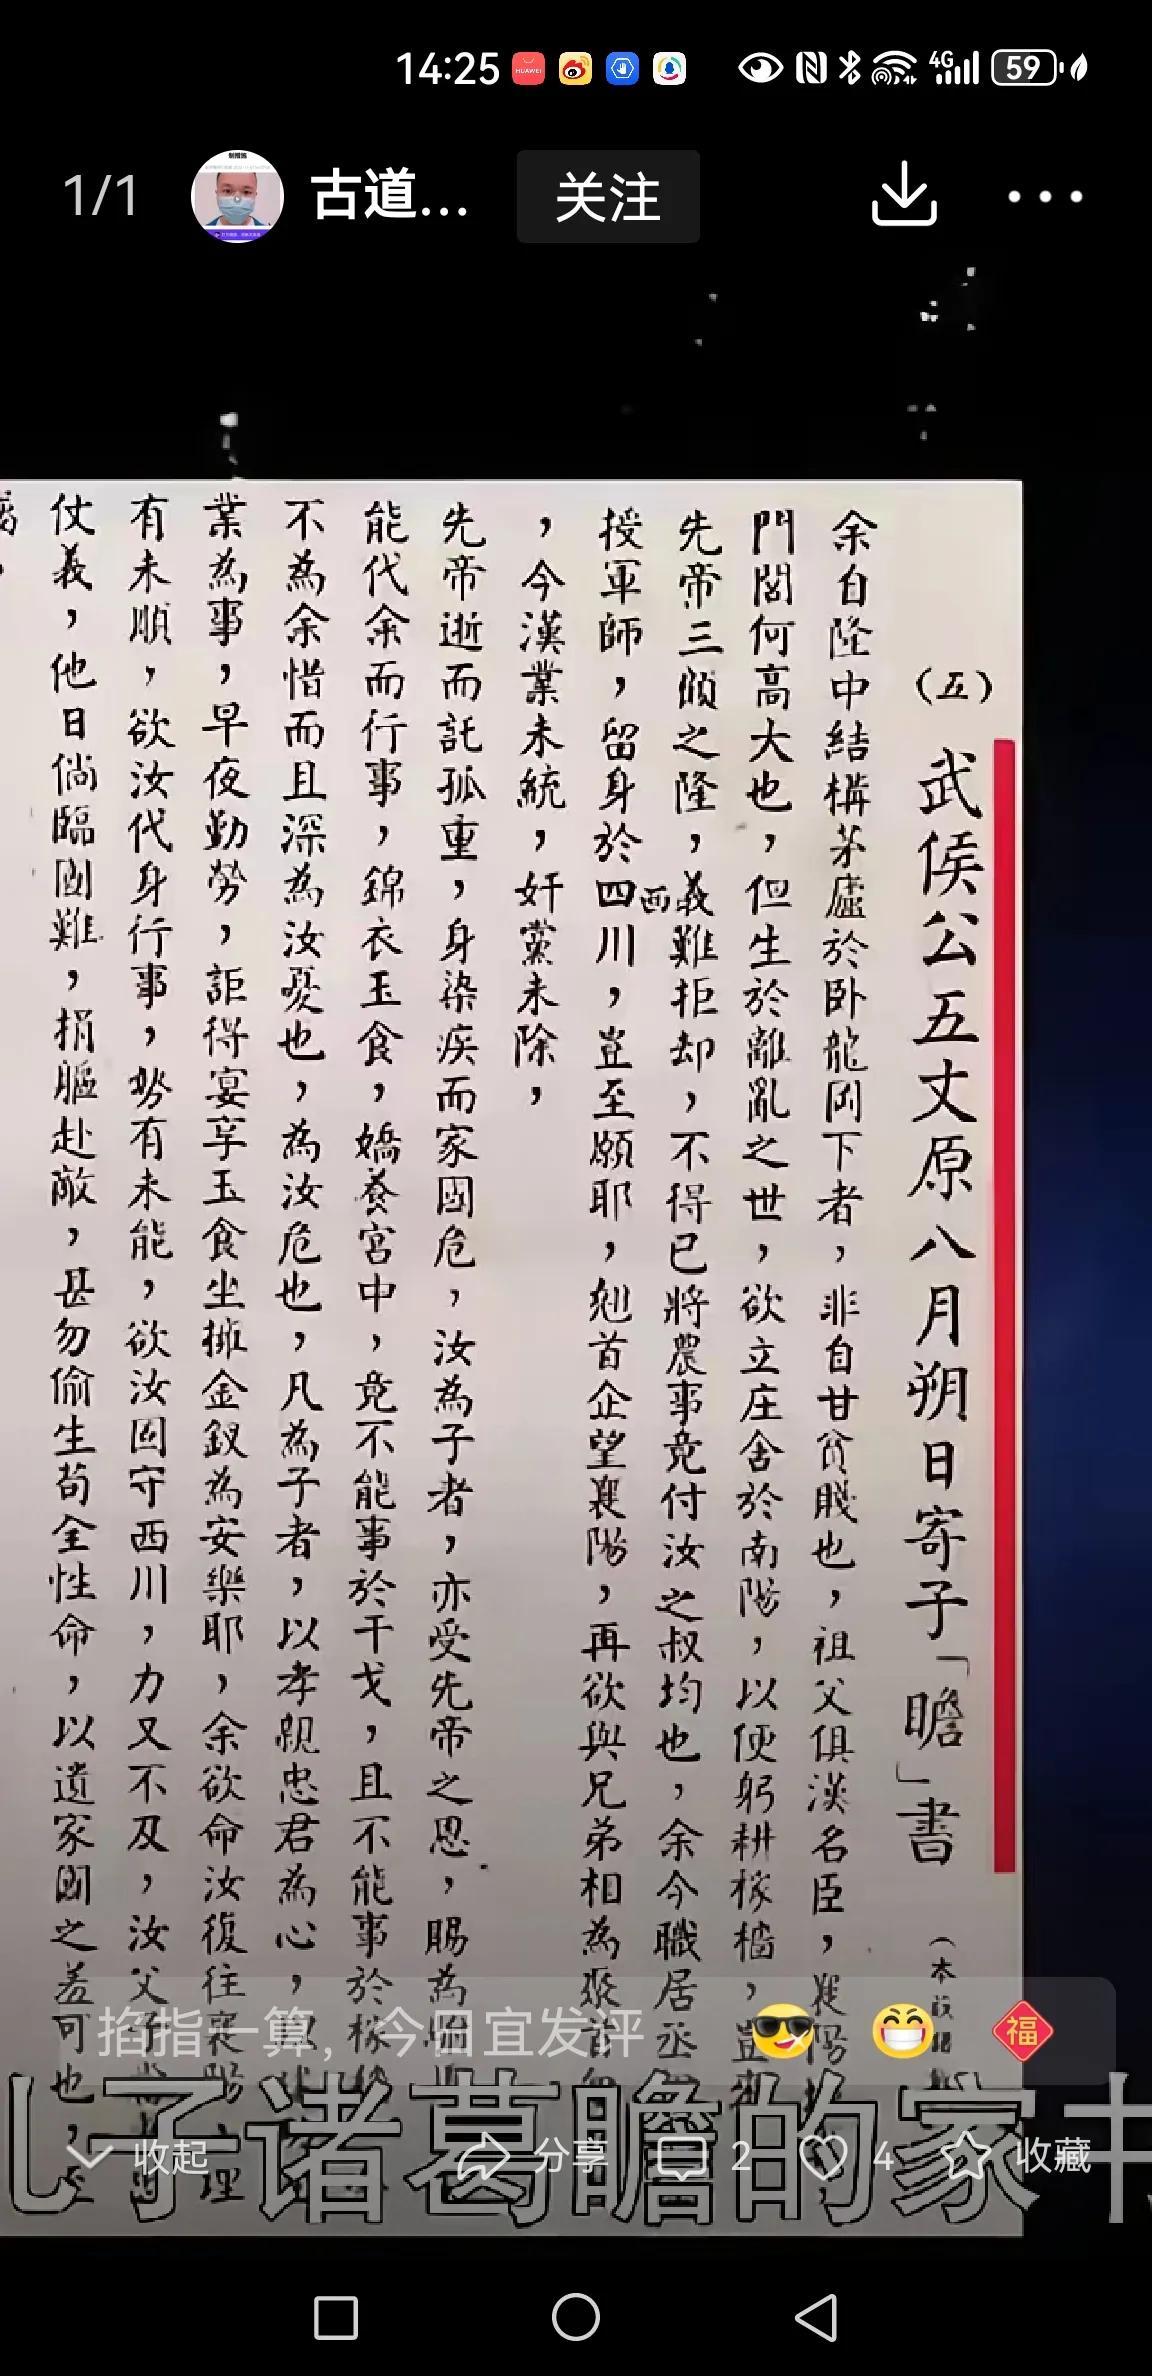 14:25
HUAWEI
4G
59
1/1
古道...
关注
(五) 武侯公五丈原八月朔日寄子「瞻」書 (本
余自隆中結構茅廬於卧龍岡下者，非自甘貧賤也，祖父俱漢名臣，襄陽
門閭何高大也，但生於離亂之世，欲立庄舍於南陽，以便躬耕稼穡，豈
先帝三顧之隆，義難拒却，不得已將農事竟付汝之叔均也，余今職居丞
授軍師，留身於四西川，豈至願耶，翹首企望襄陽，再欲與兄弟相為聚首
，今漢業未統，奸黨未除，
先帝逝而託孤重，身染疾而家國危，汝為子者，亦受先帝之恩，賜為
能代余而行事，錦衣玉食，嬌養宮中，竟不能事於干戈，且不能事於稼
不為余惜而且深為汝憂也，為汝危也，凡為子者，以孝親忠君為心，
業為事，早夜勤勞，詎得宴享玉食坐擁金釵為安樂耶，余欲命汝復往襄陽，理
有未順，欲汝代身行事，勢有未能，欲汝固守西川，力又不及，汝父
仗義，他日倘臨國難，捐軀赴敵，甚勿偷生苟全性命，以遺家國之羞可也，
掐指一算，今日宜发评
福
儿子诸葛瞻的家书
收起
分享
2
4
收藏